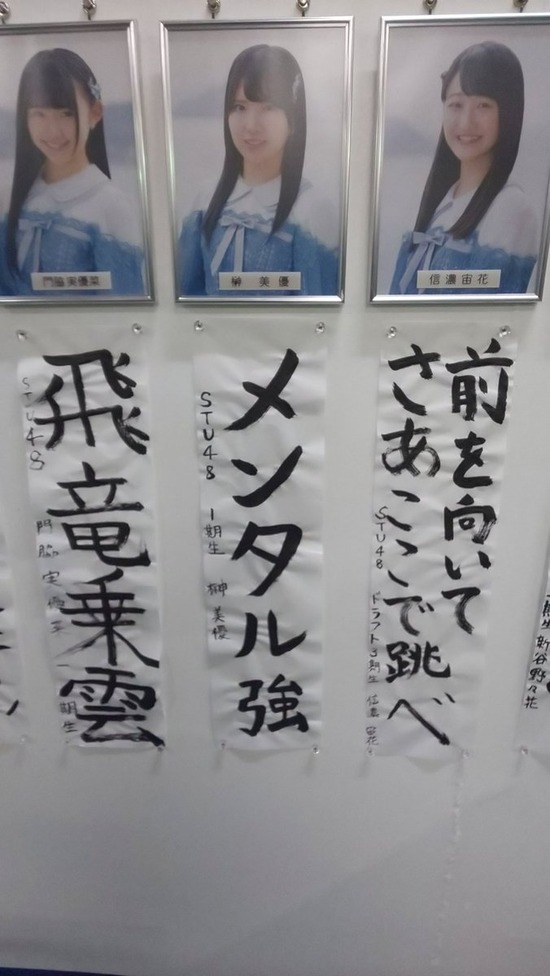 門脇実優菜
榊 美優
信濃宙花
飛竜乗雲
STU48
門脇実優菜 一期生
メンタル強
STU48 1期生 榊美優
前を向いて
さあここで跳べ
STU48 ドラフト3期生 信濃宙花
新谷野々花